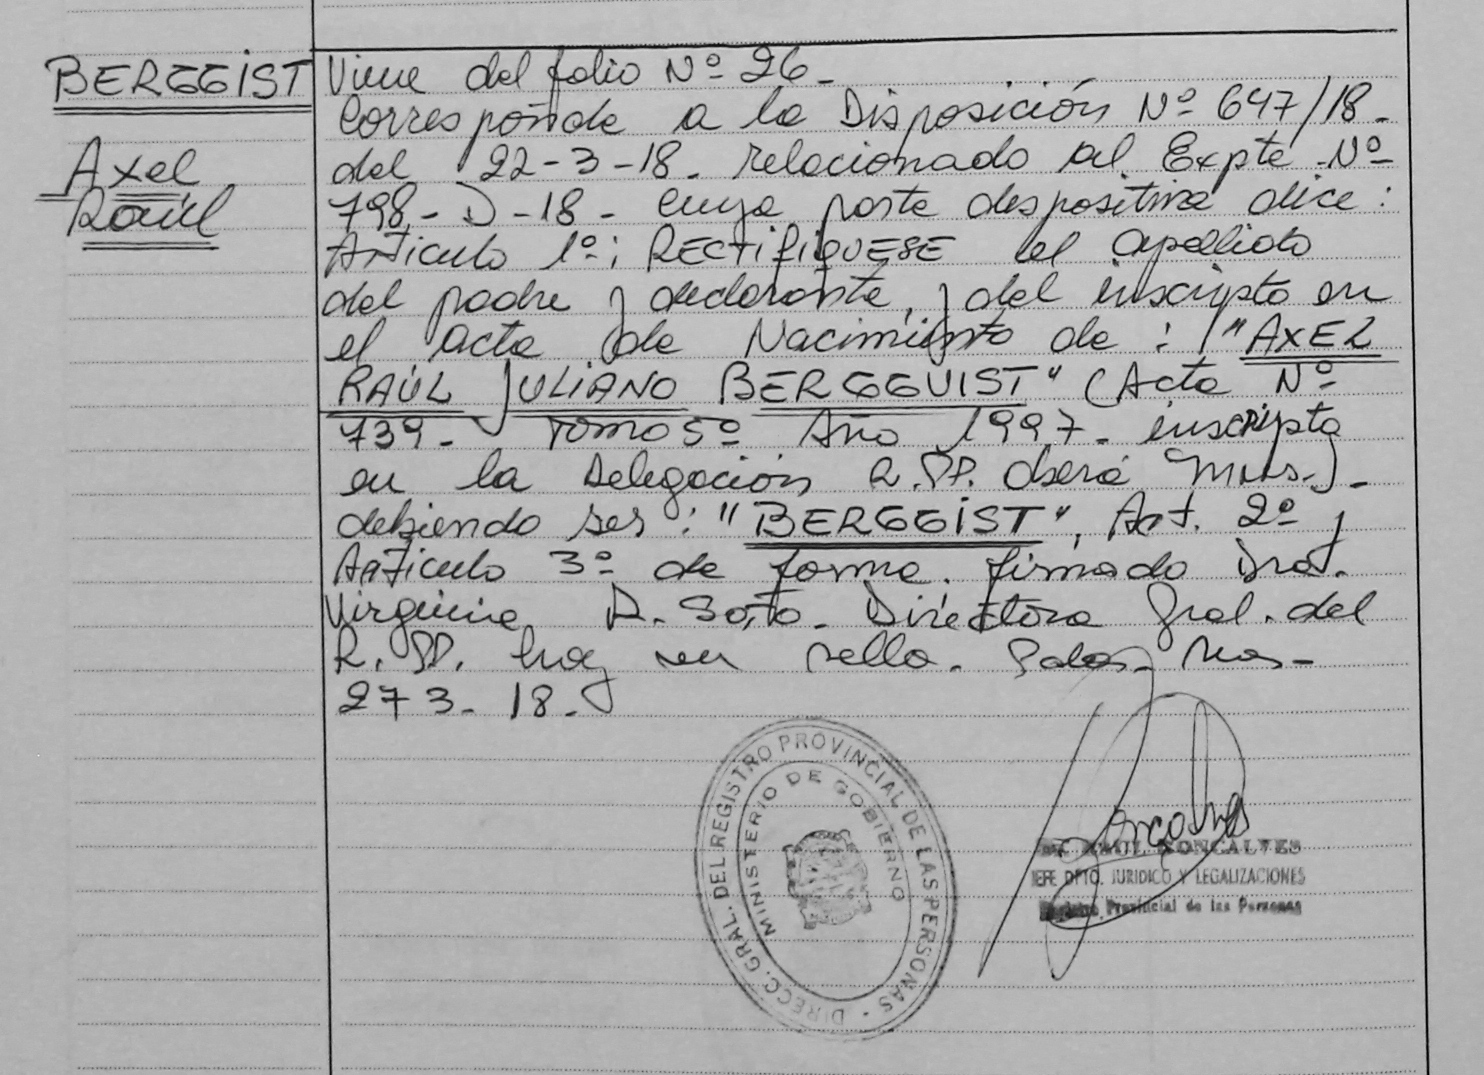 BERGGIST
Axel
Raúl
Viene del folio Nº 26-
Corresponde a la Disposición Nº 647/18-
del 22-3-18. relacionado al Expte Nº
798-D-18- cuya parte dispositiva dice:
Artículo 1º: RECTIFIQUESE el apellido
del padre y declarante, y del inscripto en
el acta de Nacimiento de: "AXEL
RAÚL JULIANO BERGGUIST" (Acta Nº
739- Tomo 5º Año 1997- inscripta
en la Delegación R.PP. Oberá Mnes.)-
debiendo ser: "BERGGIST", Art. 2º y
Artículo 3º de forma. firmado Dra.
Virginia R. Soto- Directora Gral. del
R.PP. hay un sello. Pdas- Mnes-
273-18-
DIRECC. GRAL. DEL REGISTRO PROVINCIAL DE LAS PERSONAS -
MINISTERIO DE GOBIERNO
RAUL GONCALVES
JEFE DPTO. JURIDICO Y LEGALIZACIONES
Registro Provincial de las Personas